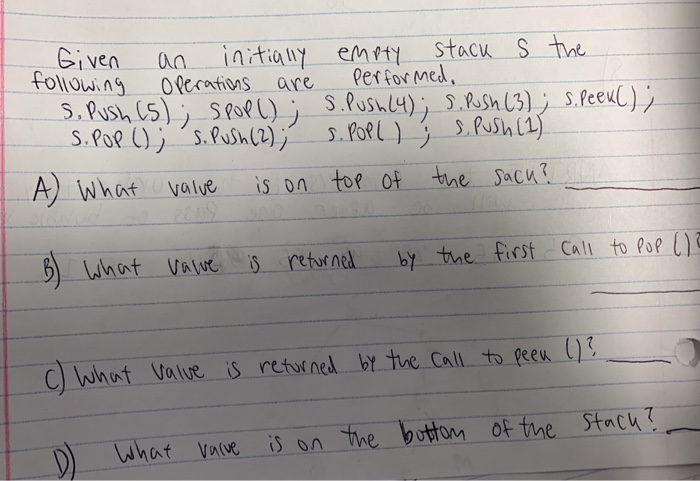 Given an initially empty stack S the
following operations are performed.
S.Push(5); SPOP(); S.Push(4); S.Push(3); S.Peek();
S.POP(); S.Push(2); S.POP(); S.Push(1)
A) What value is on top of the sack?
B) What value is returned by the first Call to Pop ()?
C) What value is returned by the Call to peek ()?
D) What value is on the bottom of the Stack?